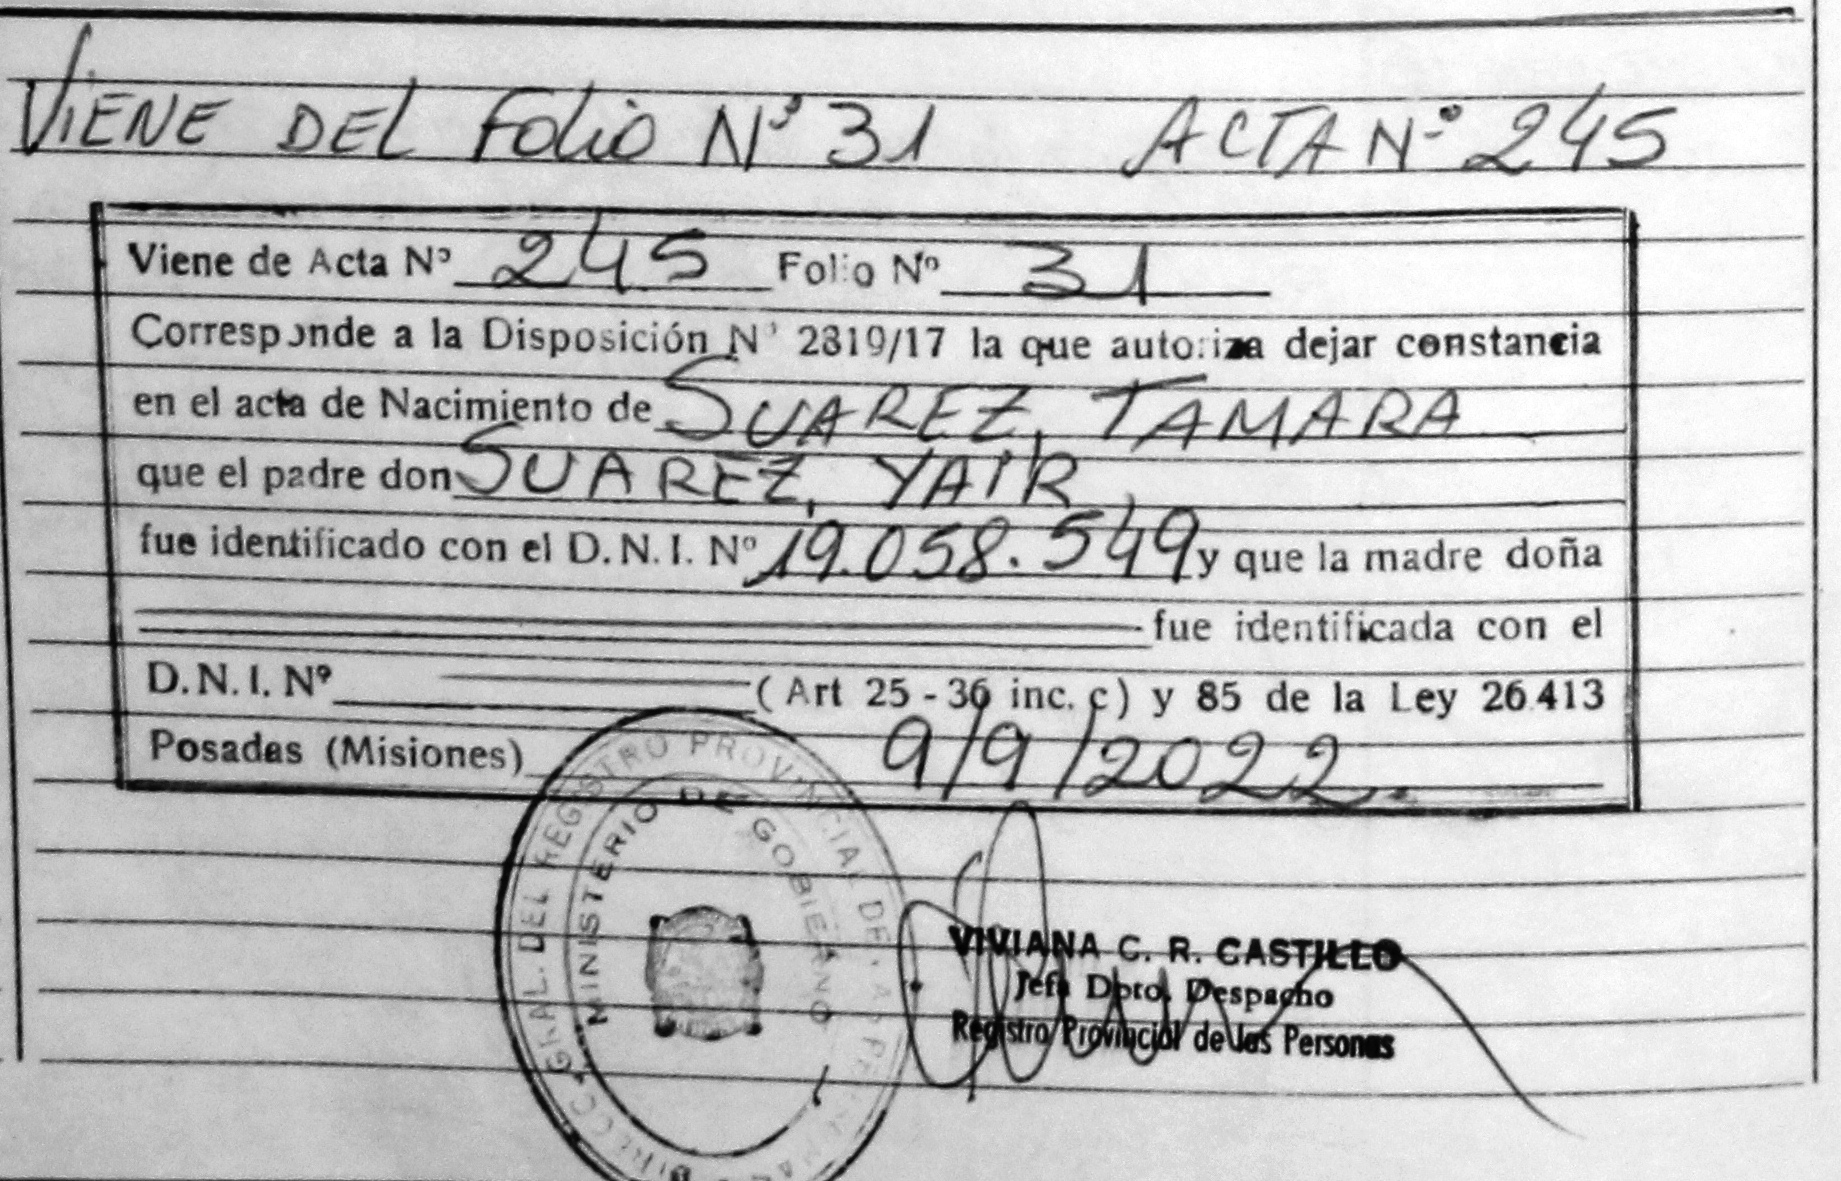 VIENE DEL FOLIO Nº 31 ACTA Nº 245
Viene de Acta Nº 245 Folio Nº 31
Corresponde a la Disposición Nº 2819/17 la que autoriza dejar constancia
en el acta de Nacimiento de SUAREZ, TAMARA
que el padre don SUAREZ, YAIR,
fue identificado con el D.N.I. Nº 19.058.549 y que la madre doña
fue identificada con el
D.N.I. Nº (Art 25 - 36 inc. c) y 85 de la Ley 26.413
Posadas (Misiones) 9/9/2022.
DIRECC. GRAL. DEL REGISTRO PROVINCIAL DE LAS PERSONAS
MINISTERIO DE GOBIERNO
VIVIANA C. R. CASTILLO
Jefa Dpto. Despacho
Registro Provincial de las Personas